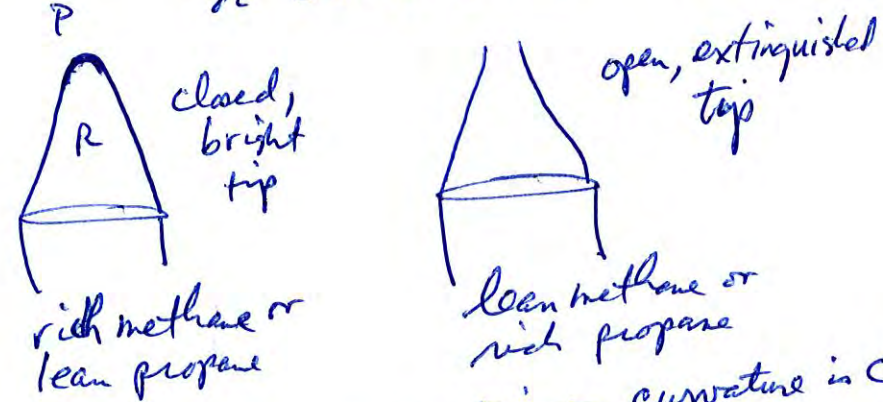 P
closed,
bright
tip
R
open, extinguished
tip
rich methane or
lean propane
lean methane or
rich propane
curvature in